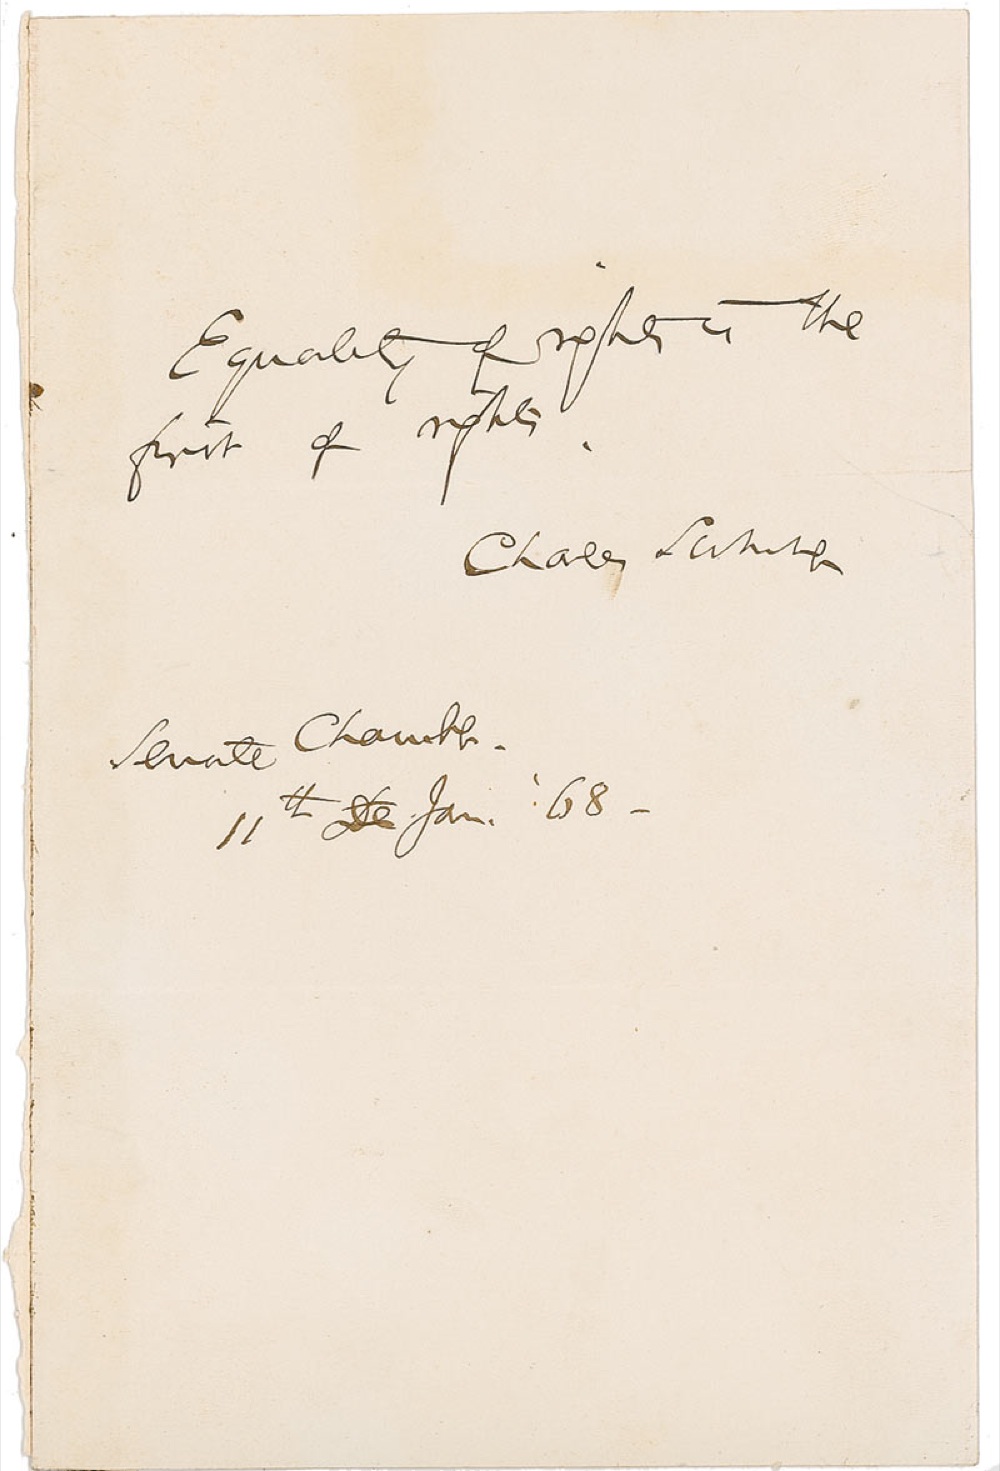 Equality of rights is the
first of rights.
Charles Sumner
Senate Chamber -
11th De Jan. '68 -